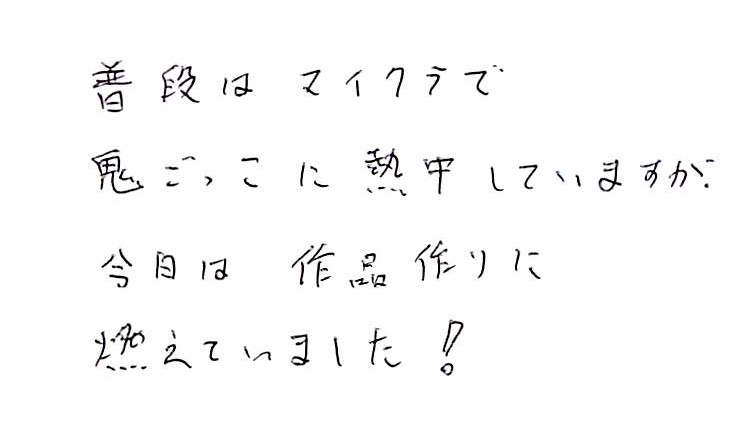 普段は マイクラで
鬼ごっこに 熱中していますが、
今日は 作品作りに
燃えていました!